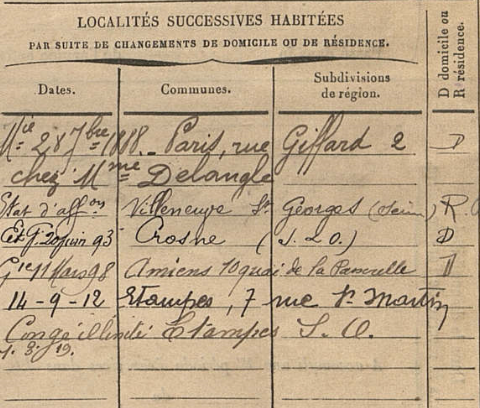 LOCALITÉS SUCCESSIVES HABITÉES
PAR SUITE DE CHANGEMENTS DE DOMICILE OU DE RÉSIDENCE.
Dates. Communes. Subdivisions de région. D domicile ou R résidence.
Mie 28 7bre 1888. Paris, rue Giffard 2 D
chez Mme Delangle
Etat d'affon Villeneuve St Georges R.
20 juin 93 Crosne (S. & O.) D
Gie 11 Mars 98 Amiens 10 quai de la D
14-9-12 Etampes, 7 rue St Martin
Congé illimité Etampes S. O.
19.